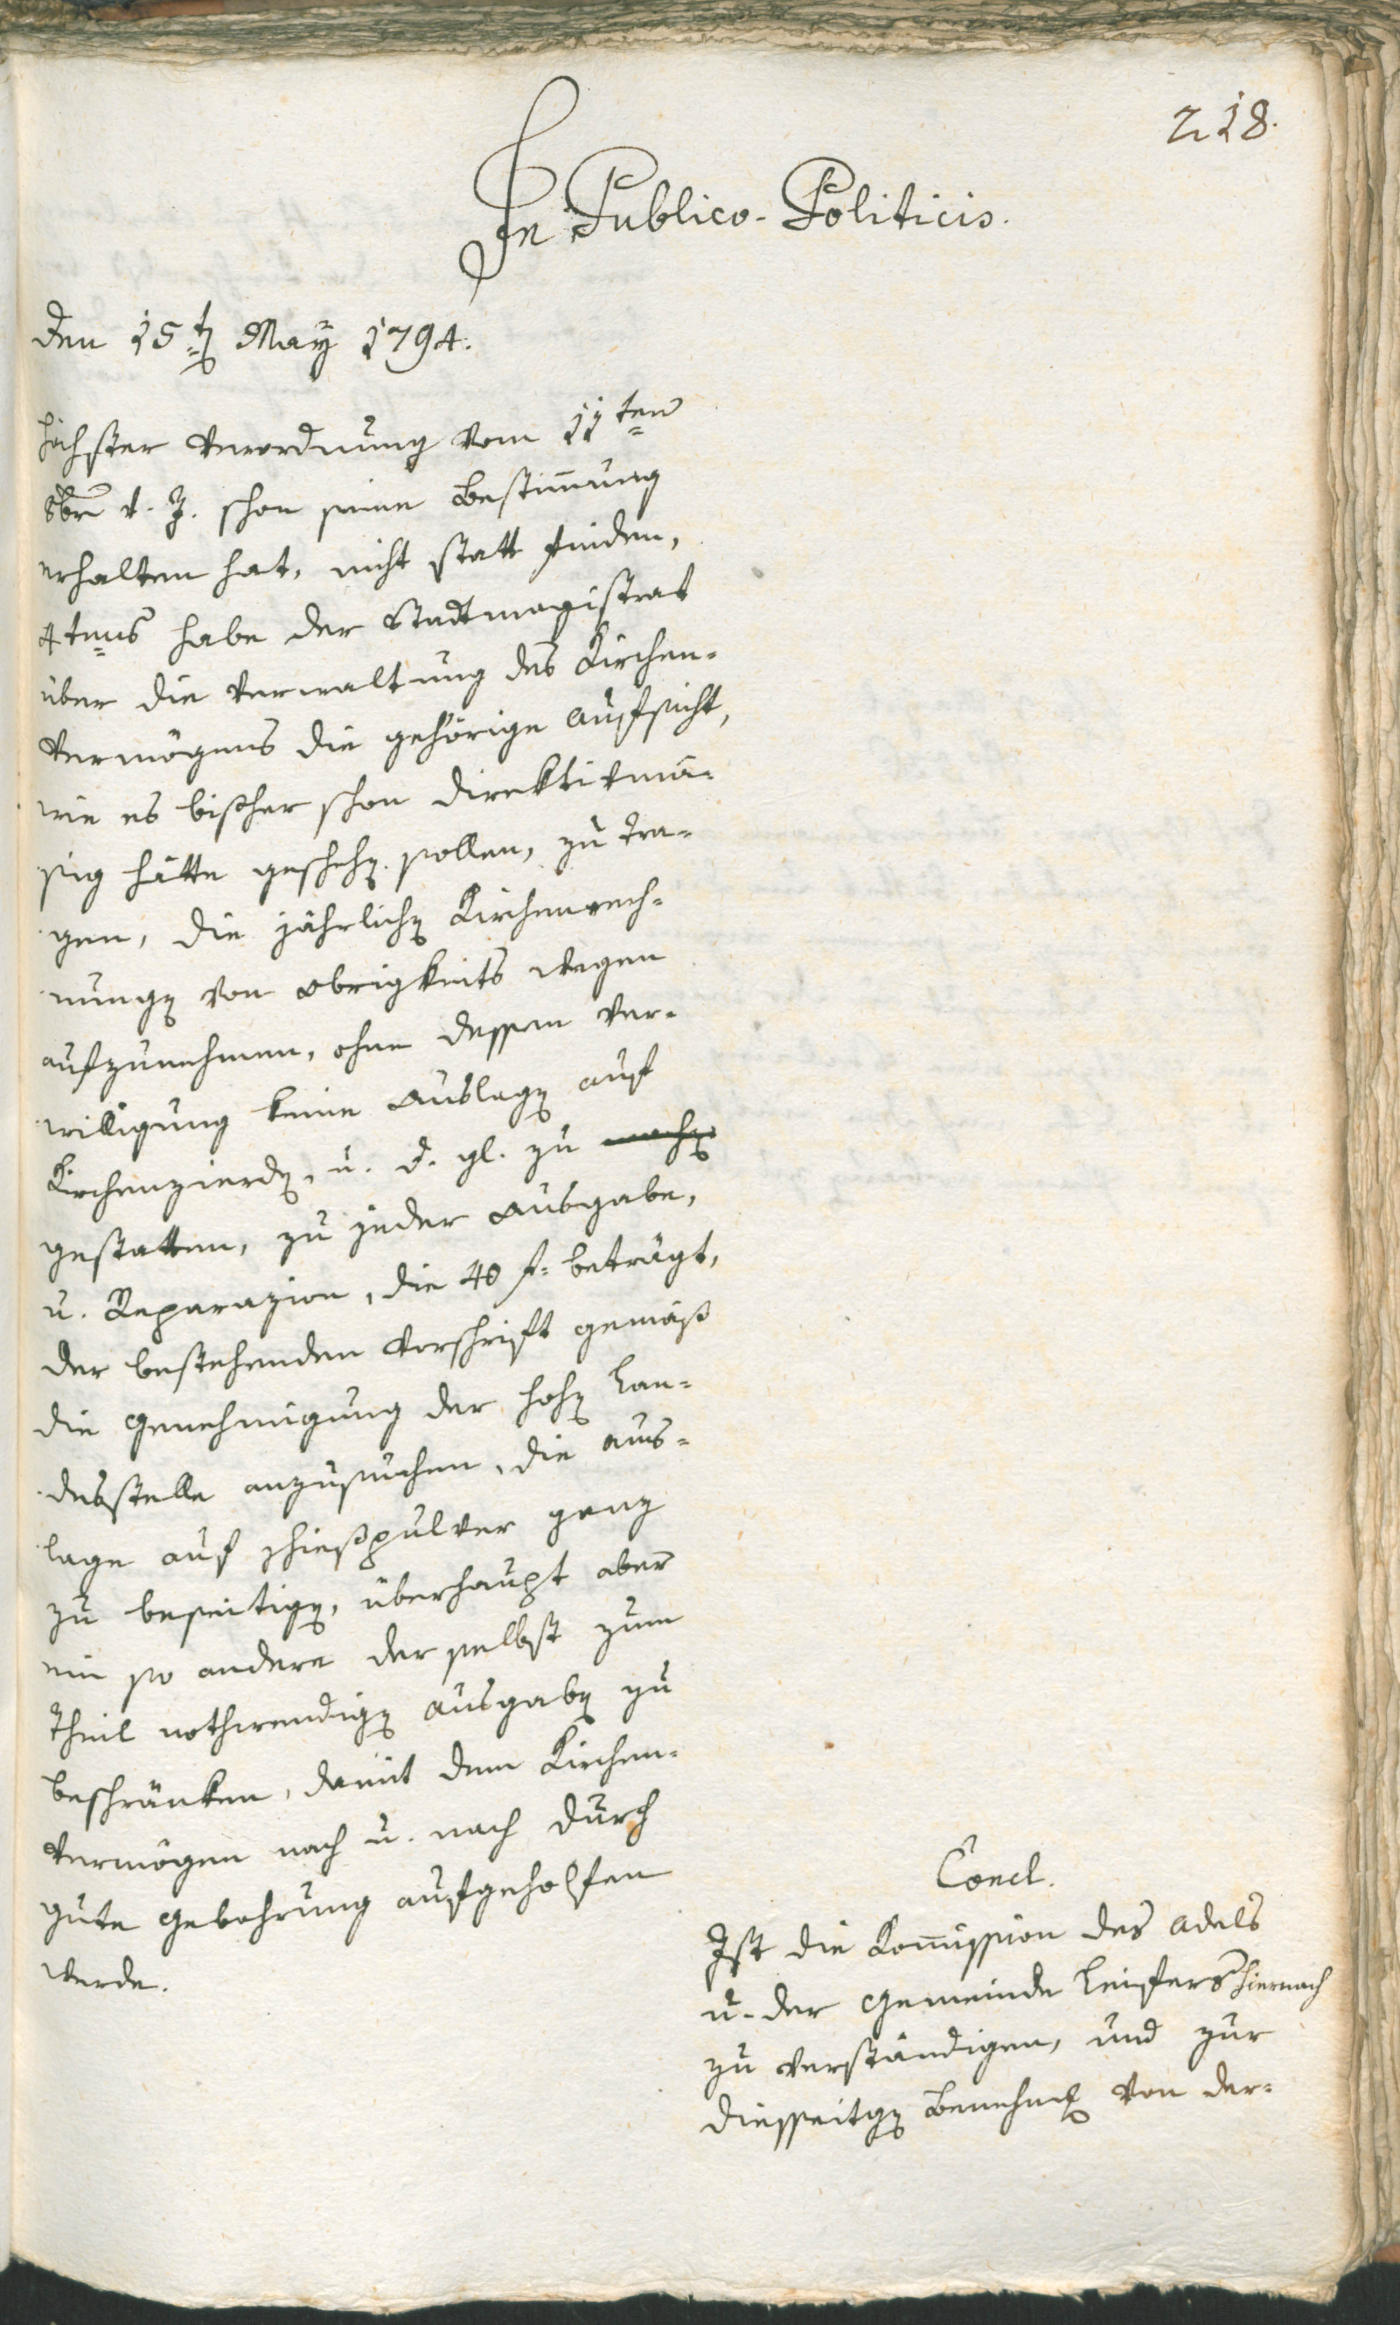 218.
In Publico-Politicis.
den 15t[en] May 1794.
höchster Verordnung vom 11ten
8br v. J. schon seine Bestim̄ung
erhalten hat, nicht statt finden,
4tens habe der Stadtmagistrat
über die Verwaltung des Kirchen-
vermögens die gehörige Aufsicht,
wie es bißher schon direktivmä-
sig hätte gescheh[en] sollen, zu tra-
gen, die jährlich[en] Kirchenrech-
nung[en] von Obrigkeits wegen
aufzunehmen, ohne dessen Ver-
willigung keine Auslag[en] auf
Kirchenzierd[en], u. d. gl. zu mach[en]
gestatten, zu jeder Ausgabe,
u. Reparazion, die 40 f. beträgt,
der bestehenden Vorschrift gemäß
die Genehmigung der hoh[en] Lan-
desstelle anzusuchen, die Aus-
lage auf Schießpulver ganz
zu beseitig[en], überhaupt aber
ein so andere der selbst zum
Theil nothwendig[en] Ausgab[en] zu
beschränken, damit dem Kirchen-
vermögen nach u. nach durch
gute Gebahrung aufgeholfen
werde.
Concl.
Ist die Kom̄ission des Adels
u. der Gemeinde Leifers hiernach
zu verständigen, und zur
diesseitig[en] Benehm[en] von der-